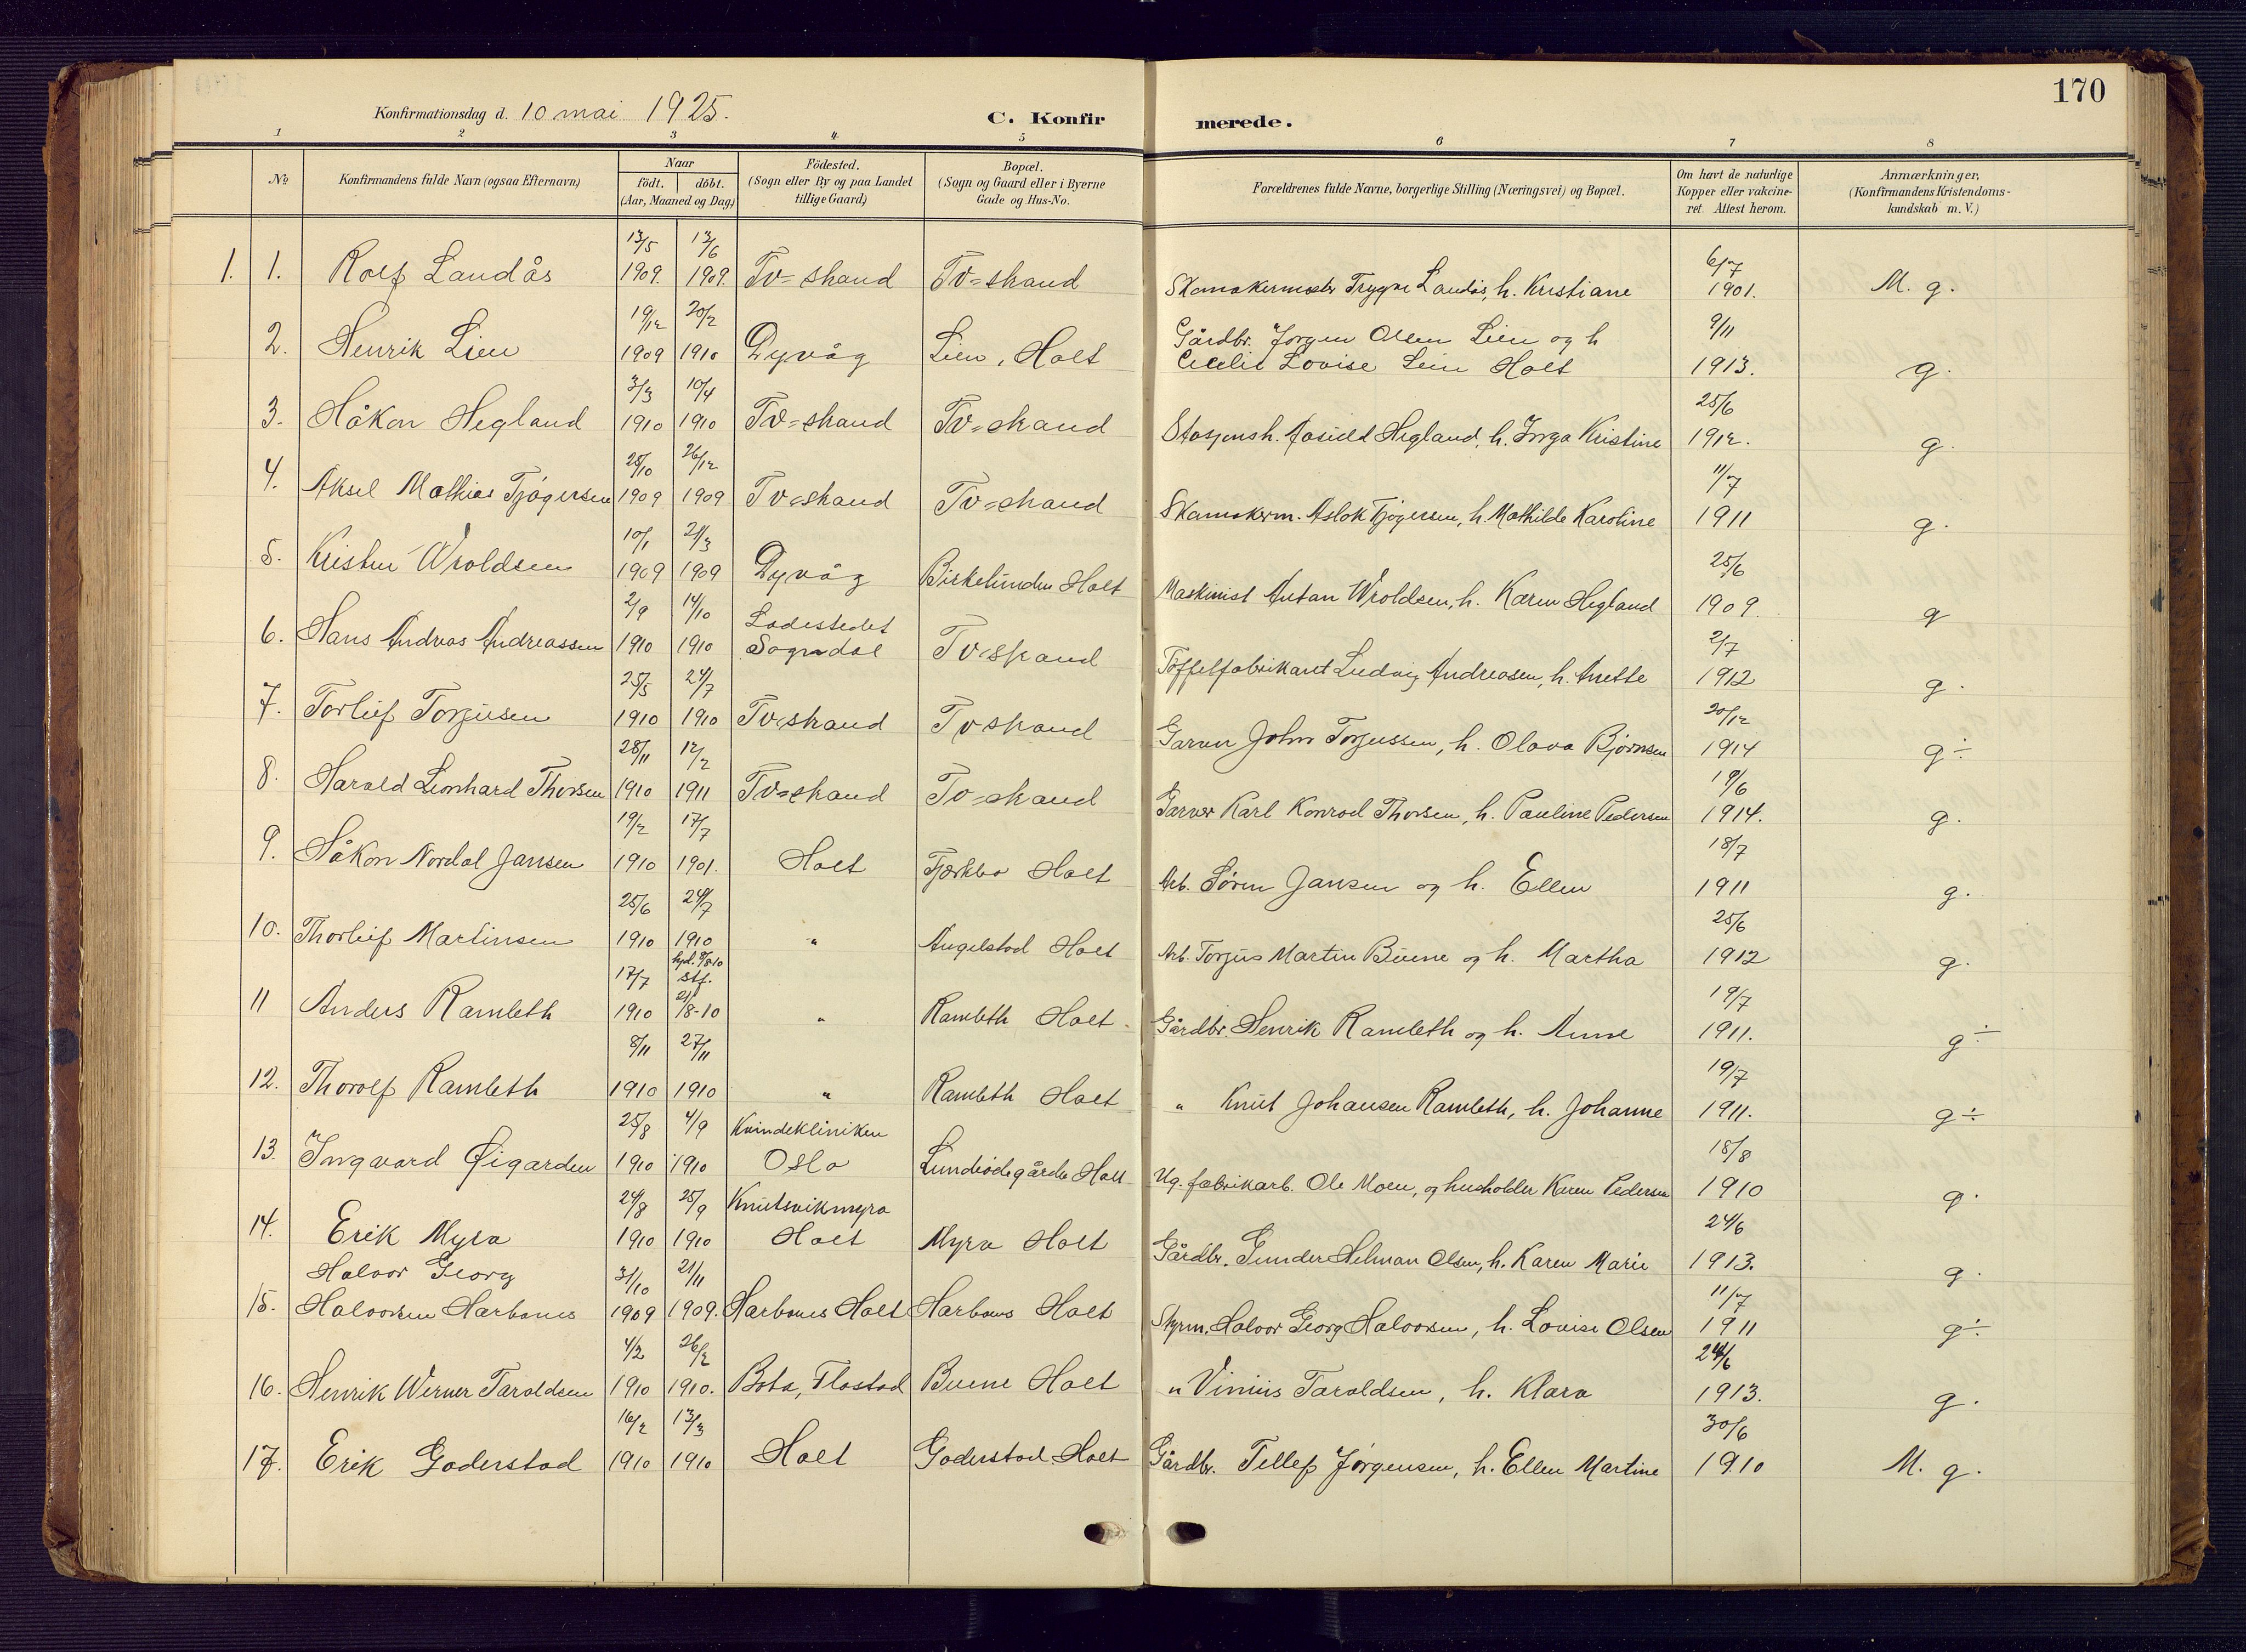 170
Konfirmationsdag d. 10 mai 1925.
C. Konfirmerede.
1 2 3 4 5 6 7 8
No
Konfirmandens fulde Navn (ogsaa Efternavn)
Naar
födt. döbt.
(Aar, Maaned og Dag)
Födested.
(Sogn eller By og paa Landet
tillige Gaard)
Bopæl.
(Sogn og Gaard eller i Byerne
Gade og Hus-No.
Forældrenes fulde Navne, borgerlige Stilling (Næringsvei) og Bopæl.
Om havt de naturlige
Kopper eller vakcine-
ret. Attest herom.
Anmærkninger,
(Konfirmandens Kristendoms-
kundskab m. V.)
13/5 13/6 6/7
1. 1. Rolf Landås 1909. 1909. Tv=strand Tv=strand Skomakermester Trygve Landås, h. Kristiane 1901. M. g.
19/12 20/2 Gårdbr. Jørgen Olsen Lien og h 9/11
2. Henrik Lien 1909 1910 Dyvåg Lien, Holt Cecilie Lovise Lien Holt 1913. g.
3/3 10/4 25/6
3. Håkon Hegland 1910 1910 Tv=strand Tv=strand Stasjonsh. Aasuld Hegland, h. Inga Kristine 1912. g.
25/10 26/12 11/7
4. Aksel Mathias Tjøgersen 1909 1909 Tv=strand Tv=strand Skomakerm. Aslak Tjøgersen, h. Mathilde Karoline 1911 g.
10/1 21/3 25/6
5. Kristen Wroldsen 1909 1909 Dyvåg Birkelunden Holt Maskinist Anton Wroldsen, h. Karen Hegland 1909. g
2/9 14/10 Ladestedet 2/7
6. Hans Andreas Andreassen 1910 1910 Sogndal Tv=strand Tøffelfabrikant Ludvig Andreasen, h. Anette 1912 g.
25/5 24/7 20/12
7. Torleif Torjusen 1910 1910 Tv=strand Tvstrand Garver John Torjussen, h. Olava Bjørnsen 1914 g÷
28/11 12/2 19/6
8. Harald Leonhard Thorsen 1910 1911 Tv=strand Tv=strand Garver Karl Konrad Thorsen, h. Pauline Pedersen 1914. g.
19/2 17/7 18/7
9. Håkon Nordal Jansen 1910 1901. Holt Tjærkbo Holt Arb. Søren Jansen og h. Ellen 1911 g.
25/6 24/7 25/6
10. Thorleif Martinsen 1910 1910 " Angelstad Holt Arb. Torjus Martin Buene og h. Martha 1912 g.
17/7 hjd. 9/8-10 stf. 19/7
11 Anders Ramleth 1910 21/8-10 " Ramleth Holt. Gårdbr. Henrik Ramleth og h. Anne 1911. g÷
8/11 27/11 19/7
12. Thorolf Ramleth 1910 1910 " Ramleth Holt " Knut Johansen Ramleth, h. Johanne 1911. g÷
25/8 4/9 Kvindekliniken 18/8
13. Ingvard Øigarden 1910 1910 Oslo Lundeødegården Holt Ug. fabrikarb. Ole Moen, og husholder Karen Pedersen 1910 g.
24/8 25/9 Knutsvikmyra 24/6
14. Erik Myra 1910 1910 Holt Myra Holt Gårdbr. Gunder Helman Olsen, h. Karen Marie 1913. g.
Halvor Georg 31/10 21/11 11/7
15. Halvorsen Harbones 1909 1909. Harbones Holt Harbones Holt Styrm. Halvor Georg Halvorsen, h. Lovise Olsen 1911 g÷
4/2 26/2 24/6
16. Henrik Werner Taraldsen 1910 1910. Bota, Flostad Buene Holt " Vinius Taraldsen, h. Klara 1913. g.
16/2 13/3 30/6
17. Erik Goderstad 1910 1910 Holt Goderstad. Holt Gårdbr. Tellef Jørgensen, h. Ellen Martine 1910 M. g.